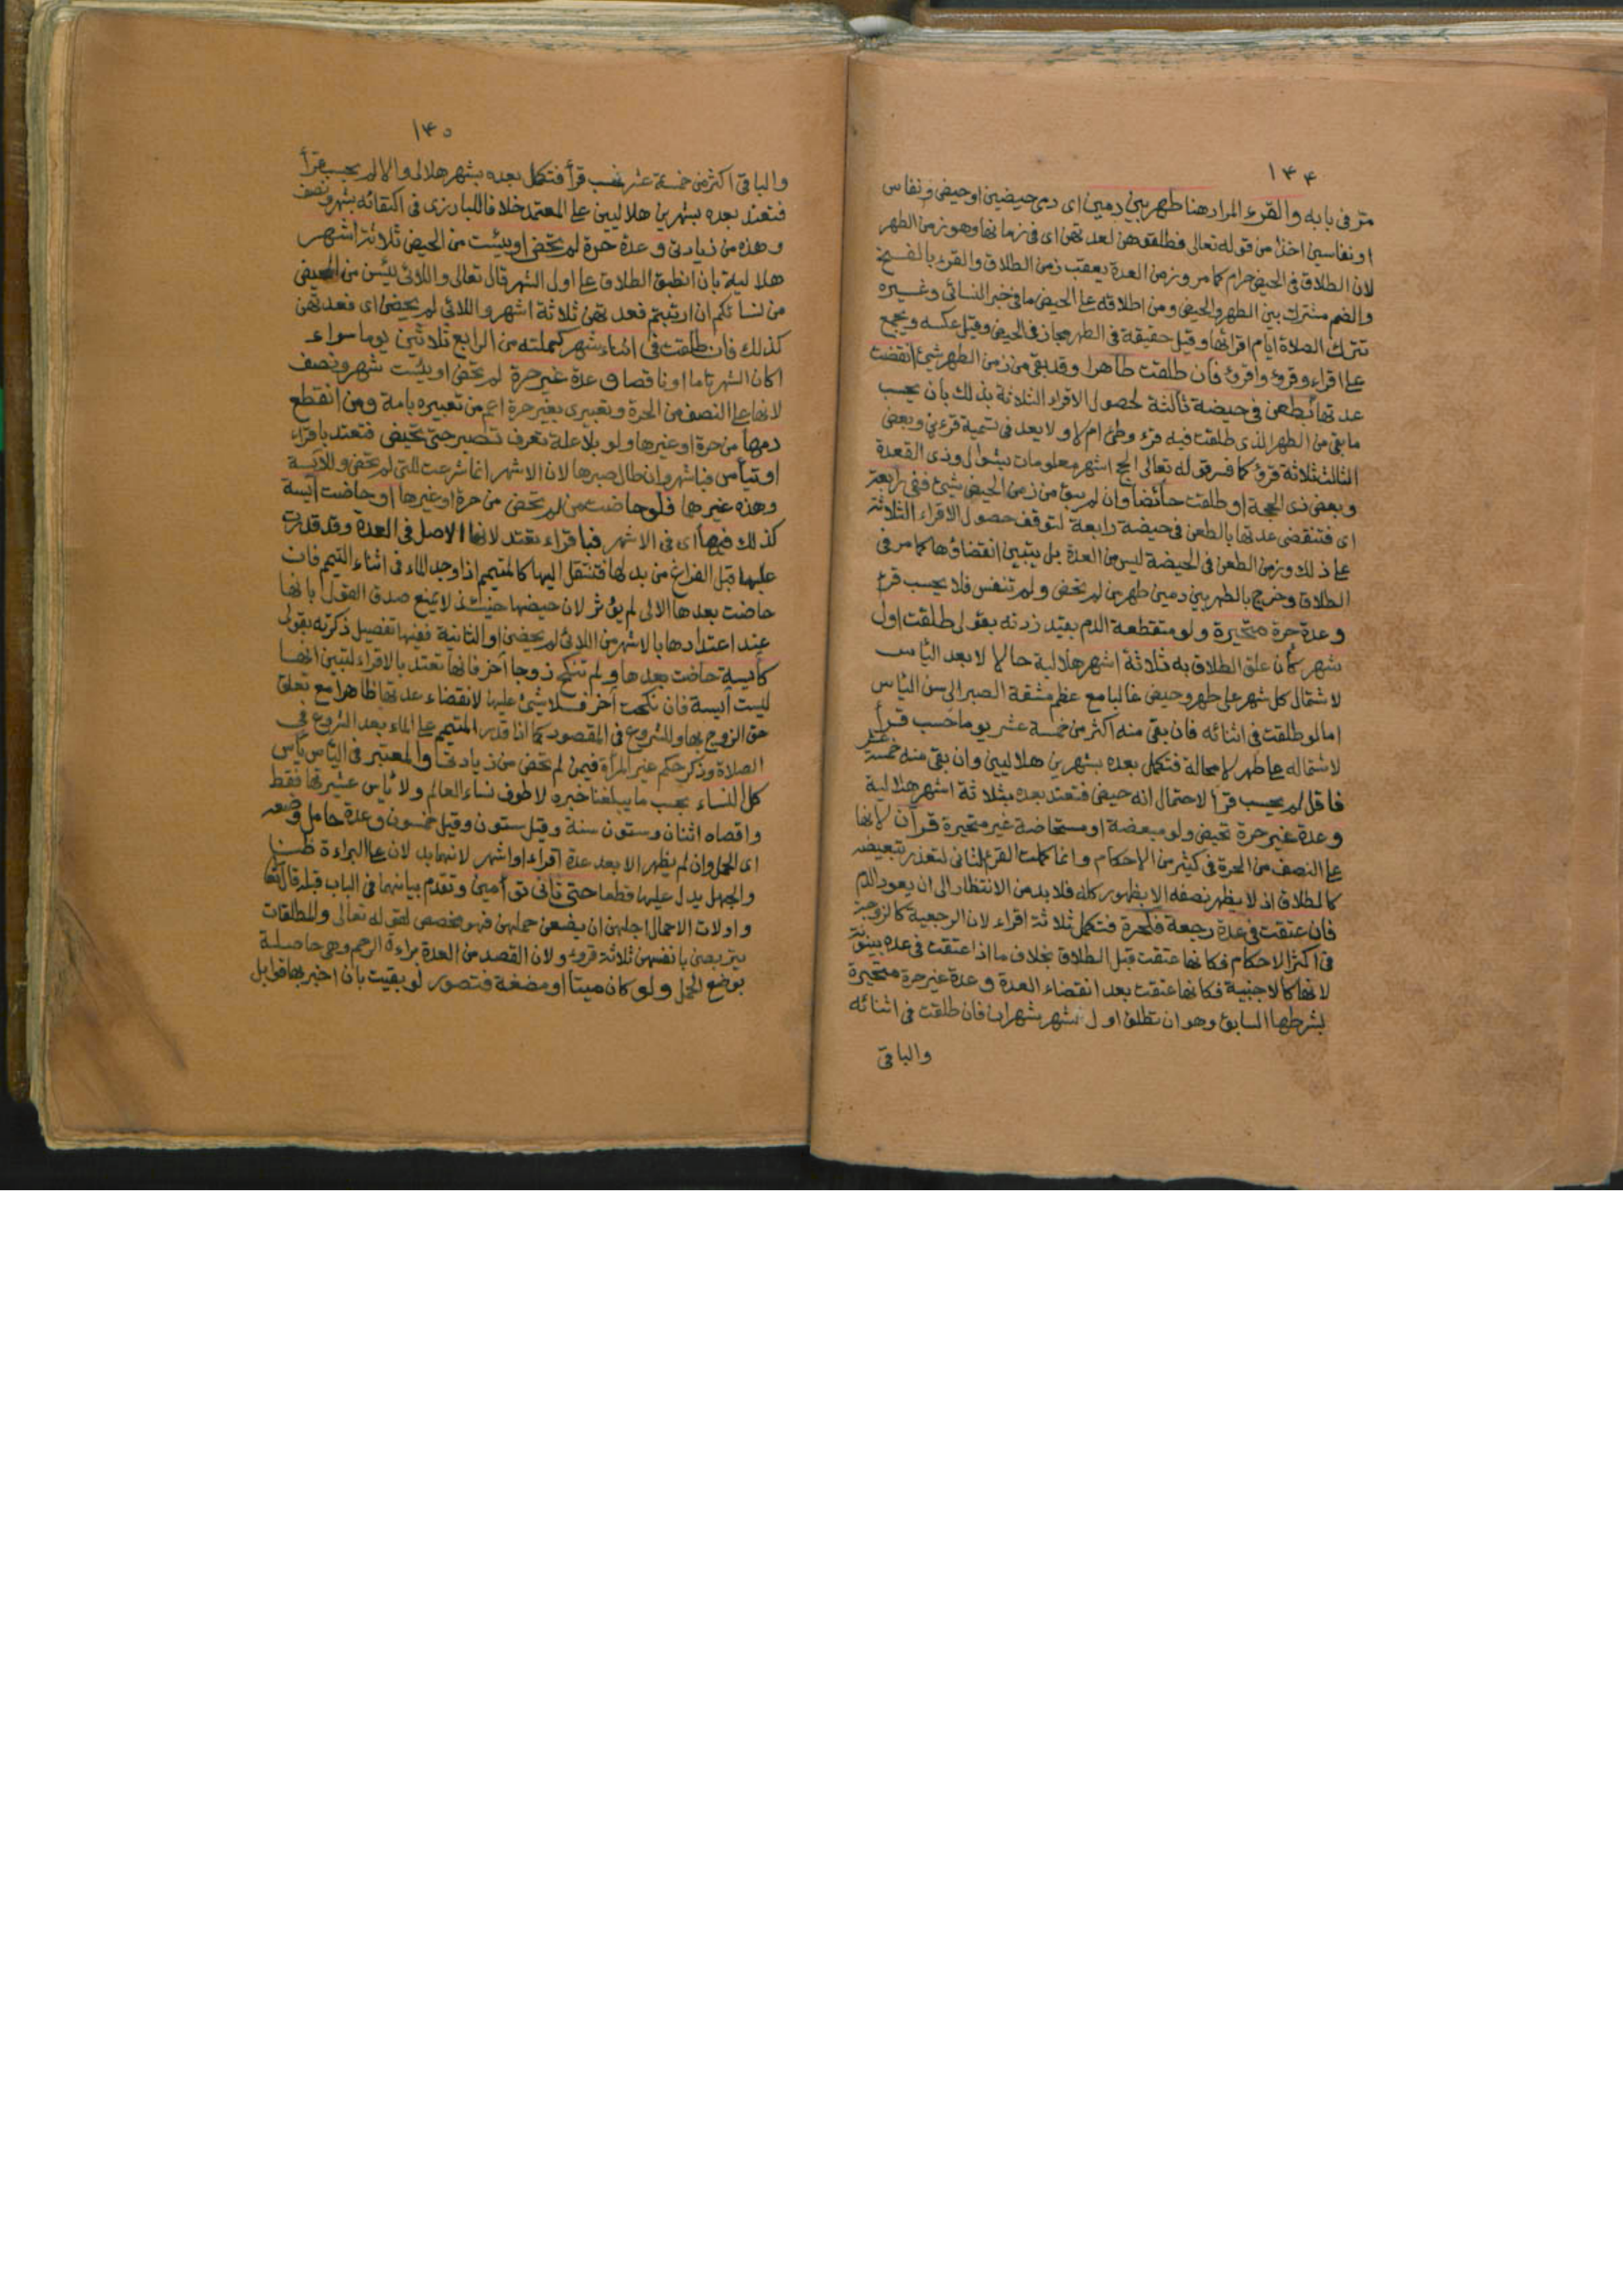 ١٤٤
مر فى بابه والقرء المراد هنا طهر بين دمين اى دمى حيضين او حيض ونفاس
او نفاسين اخذا من قوله تعالى فطلقوهن لعدتهن اى فى زمانها وهو زمن الطهر
لان الطلاق فى الحيض حرام كما مر وزمن العدة يعقب زمن الطلاق والقرء بالفتح
والضم مشترك بين الطهر والحيض ومن اطلاقه على الحيض ما فى خبر النسائى وغيره
تترك الصلاة ايام اقرائها وقيل حقيقة فى الطهر مجاز فى الحيض وقيل عكسه ويجمع
على اقراء وقروء واقرؤ فان طلقت طاهرا وقد بقى من زمن الطهر شىء انقضت
عدتها بطعن فى حيضة ثالثة لحصول الاقراء الثلاثة بذلك بان يحسب
ما بقى من الطهر الذى طلقت فيه قرء وطئ ام لا ولا بعد فى تسمية قرءين وبعض
الثالث ثلاثة قروء كما فسر قوله تعالى الحج اشهر معلومات بشوال وذى القعدة
وبعض ذى الحجة او طلقت حائضا وان لم يبق من زمن الحيض شئ ففى رابعة
اى فتنقضى عدتها بالطعن فى حيضة رابعة لتوقف حصول الاقراء الثلاثة
على ذلك وزمن الطعن فى الحيضة ليس من العدة بل يتبين انقضاؤها كما مر فى
الطلاق وخرج بالطهر بين دمين طهر من لم تحض ولم تنفس فلا يحسب قرء
وعدة حرة متحيرة ولو متقطعة الدم بقيد زدته بقولى طلقت اول
شهر كأن علق الطلاق به ثلاثة اشهر هلالية حالا لا بعد اليأس
لاشتمال كل شهر على طهر وحيض غالبا مع عظم مشقة الصبر الى سن اليأس
اما لو طلقت فى اثنائه فان بقى منه اكثر من خمسة عشر يوما حسب قرأ
لاشتماله على طهر لا محالة فتكمل بعده بشهرين هلاليين وان بقى منه خمسة عشر
فاقل لم يحسب قرأ لاحتمال انه حيض فتعتد بعده بثلاثة اشهر هلالية
وعدة غير حرة تحيض ولو مبعضة او مستحاضة غير متحيرة قرآن لانها
على النصف من الحرة فى كثير من الاحكام وانما كملت القرء الثانى لتعذر تبعيضه
كالطلاق اذ لا يظهر نصفه الا بظهور كله فلا بد من الانتظار الى ان يعود الدم
فان عتقت فى عدة رجعة فكحرة فتكمل ثلاثة اقراء لان الرجعية كالزوجة
فى اكثر الاحكام فكانها عتقت قبل الطلاق بخلاف ما اذا عتقت فى عدة بينونة
لانها كالاجنبية فكانها عتقت بعد انقضاء العدة وعدة غير حرة متحيرة
بشرطها السابق وهو ان تطلق اول شهر شهران فان طلقت فى اثنائه
والباقى
١٤٥
والباقى اكثر من خمسة عشر حسب قرأ فتكمل بعده بشهر هلالى والا لم يحسب قرأ
فتعتد بعده بشهرين هلاليين على المعتمد خلافا للبارزى فى اكتفائه بشهر ونصف
وهذه من زيادتى وعدة حرة لم تحض او يئست من الحيض ثلاثة اشهر
هلالية بان انطبق الطلاق على اول الشهر قال تعالى واللائى يئسن من المحيض
من نسائكم ان ارتبتم فعدتهن ثلاثة اشهر واللائى لم يحضن اى فعدتهن
كذلك فان طلقت فى اثناء شهر كملته من الرابع ثلاثين يوما سواء
اكان الشهر تاما او ناقصا وعدة غير حرة لم تحض او يئست شهر ونصف
لانها على النصف من الحرة وتعبيرى بغير حرة اعم من تعبيره بامة ومن انقطع
دمها من حرة او غيرها ولو بلا علة تعرف تصبر حتى تحيض فتعتد باقراء
او تيأس فباشهر وان طال صبرها لان الاشهر انما شرعت للتى لم تحض وللآيسة
وهذه غيرهما فلو حاضت من لم تحض من حرة او غيرها او حاضت آيسة
كذلك فيها اى فى الاشهر فباقراء تعتد لانها الاصل فى العدة وقد قدرت
عليها قبل الفراغ من بدلها فتنتقل اليها كالمتيمم اذا وجد الماء فى اثناء التيمم فان
حاضت بعدها الاولى لم يؤثر لان حيضها حينئذ لا يمنع صدق القول بانها
عند اعتدادها بالاشهر من اللائى لم يحضن او الثانية ففيها تفصيل ذكرته بقولى
كآيسة حاضت بعدها ولم تنكح زوجا آخر فانها تعتد بالاقراء لتبين انها
ليست آيسة فان نكحت آخر فلا شئ عليها لانقضاء عدتها ظاهرا مع تعلق
حق الزوج بها وللشروع فى المقصود كما اذا قدر المتيمم على الماء بعد الشروع فى
الصلاة وذكر حكم غير المرأة فيمن لم تحض من زيادتى والمعتبر فى اليأس يأس
كل النساء بحسب ما يبلغنا خبره لا طوف نساء العالم ولا يأس عشيرتها فقط
واقصاه اثنان وستون سنة وقيل ستون وقيل خمسون وعدة حامل وضعه
اى الحمل وان لم يظهر الا بعد عدة اقراء او اشهر لانهما يدلان على البراءة ظنا
والحمل يدل عليها قطعا حتى ثانى توأمين وتقدم بيانهما فى الباب قبله قال تعالى
واولات الاحمال اجلهن ان يضعن حملهن فهو مخصص لقوله تعالى والمطلقات
يتربصن بانفسهن ثلاثة قروء ولان القصد من العدة براءة الرحم وهى حاصلة
بوضع الحمل ولو كان ميتا او مضغة فتصور لو بقيت بان اخبر بها قوابل